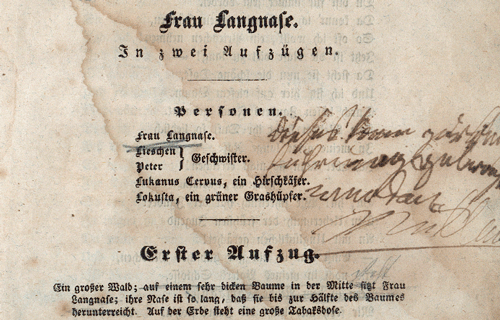 Frau Langnase.
In zwei Aufzügen.
Personen.
Frau Langnase.
Lieschen
Peter
Geschwister.
Lukanus Cervus, ein Hirschkäfer.
Lokusta, ein grüner Grashüpfer.
Erster Aufzug.
Ein großer Wald; auf einem sehr dicken Baume in der Mitte sitzt Frau
Langnase; ihre Nase ist so lang, daß sie bis zur Hälfte des Baumes
herunterreicht. Auf der Erde steht eine große Tabaksdose.